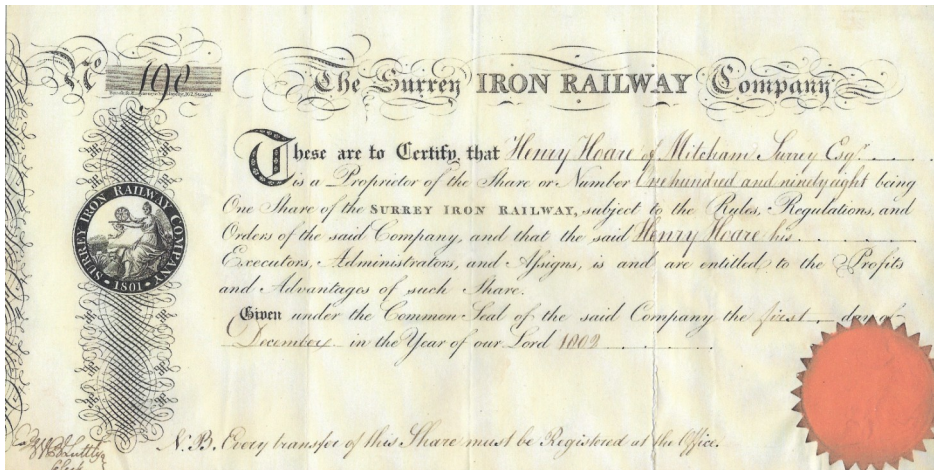 No 198
The Surrey IRON RAILWAY Company
These are to Certify, that Henry Hoare of Mitcham Surrey Esqr.
is a Proprietor of the Share or Number One hundred and ninety eight being
One Share of the SURREY IRON RAILWAY, subject to the Rules, Regulations, and
Orders of the said Company, and that the said Henry Hoare his
Executors, Administrators, and Assigns, is and are entitled to the Profits
and Advantages of such Share.
Given under the Common Seal of the said Company the first day of
December in the Year of our Lord 1802
SURREY IRON RAILWAY COMPANY
1801
N.B. Every transfer of this Share must be Registered at the Office.
Clerk